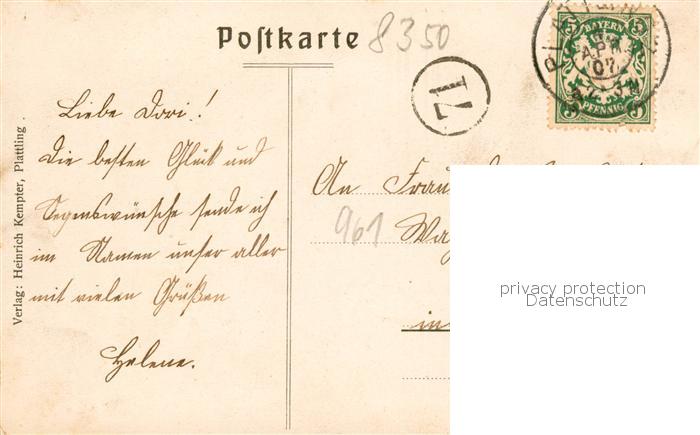 Postkarte
8350
BAYERN
5 5
APR
07
PFENNIG
17
Liebe Dori!
Die besten Glück und
Segenswünsche sende ich
im Namen unser aller
mit vielen Grüßen
Helene.
An Frau
961
in
Verlag: Heinrich Kempter, Plattling.
privacy protection
Datenschutz